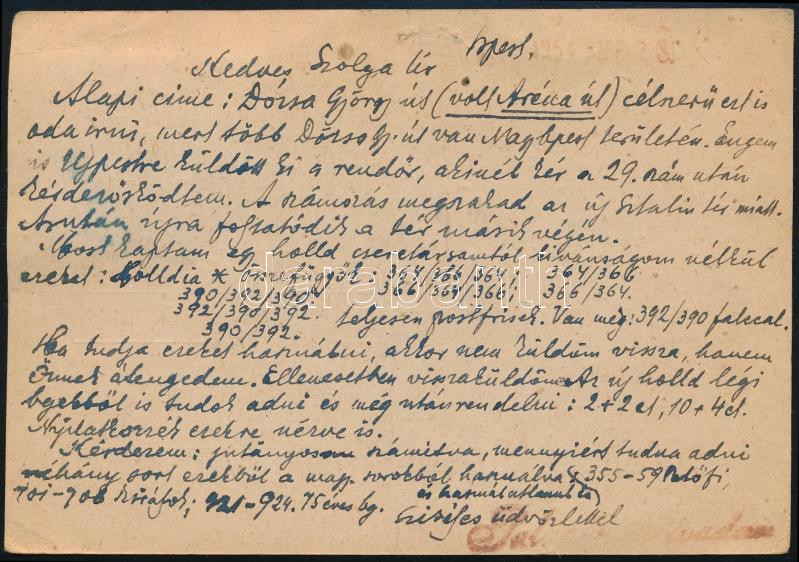 Bpest.
Kedves Szolga Úr
Alapi címe: Dózsa György út (volt Aréna út) célszerű ezt is
odaírni, mert több Dózsa Gy. út van Nagybpest területén. Engem
is Újpestre küldött ki a rendőr, akinél
kérdezősködtem. A számozás megszakad az új Sztalin tér miatt.
Azután újra folytatódik a tér másik végén.
Most kaptam egy holld cseretársamtól kívánságom nélkül
ezeket: Holldia * összefüggők: 364/366/364; 364/366
390/392/390 366/364/366; 366/364.
392/390/392. teljesen postfrisek. Van még: 392/390 falccal.
390/392.
Ha tudja ezeket használni, akkor nem küldöm vissza, hanem
Önnek átengedem. Ellenesetben visszaküldöm. Az új holld légi
bgekből is tudok adni és még utánrendelni: 2+2 ct, 10+4 ct.
Nyilatkozzék ezekre nézve is.
Kérdezem: jutányosan számítva, mennyiért tudna adni
néhány sort ezekből a magy. sorokból használva 355-59 Petőfi
701-708 921-924. 75 éves bg. és használatlanul is
Szívélyes üdvözlettel
darabanth